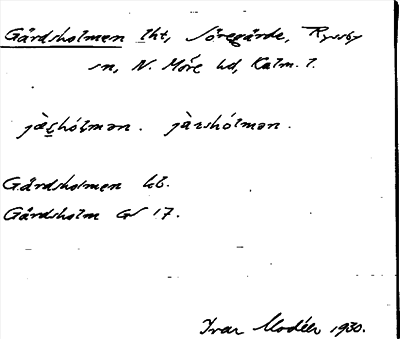 Gårdsholmen lht, Söregärde, Ryssby
sn, N. Möre hd, Kalm. l.
jàs̱hólmən. jàrshólmən.
Gårdsholmen kb.
Gårdsholm GV 17.
Ivar Modéer 1930.